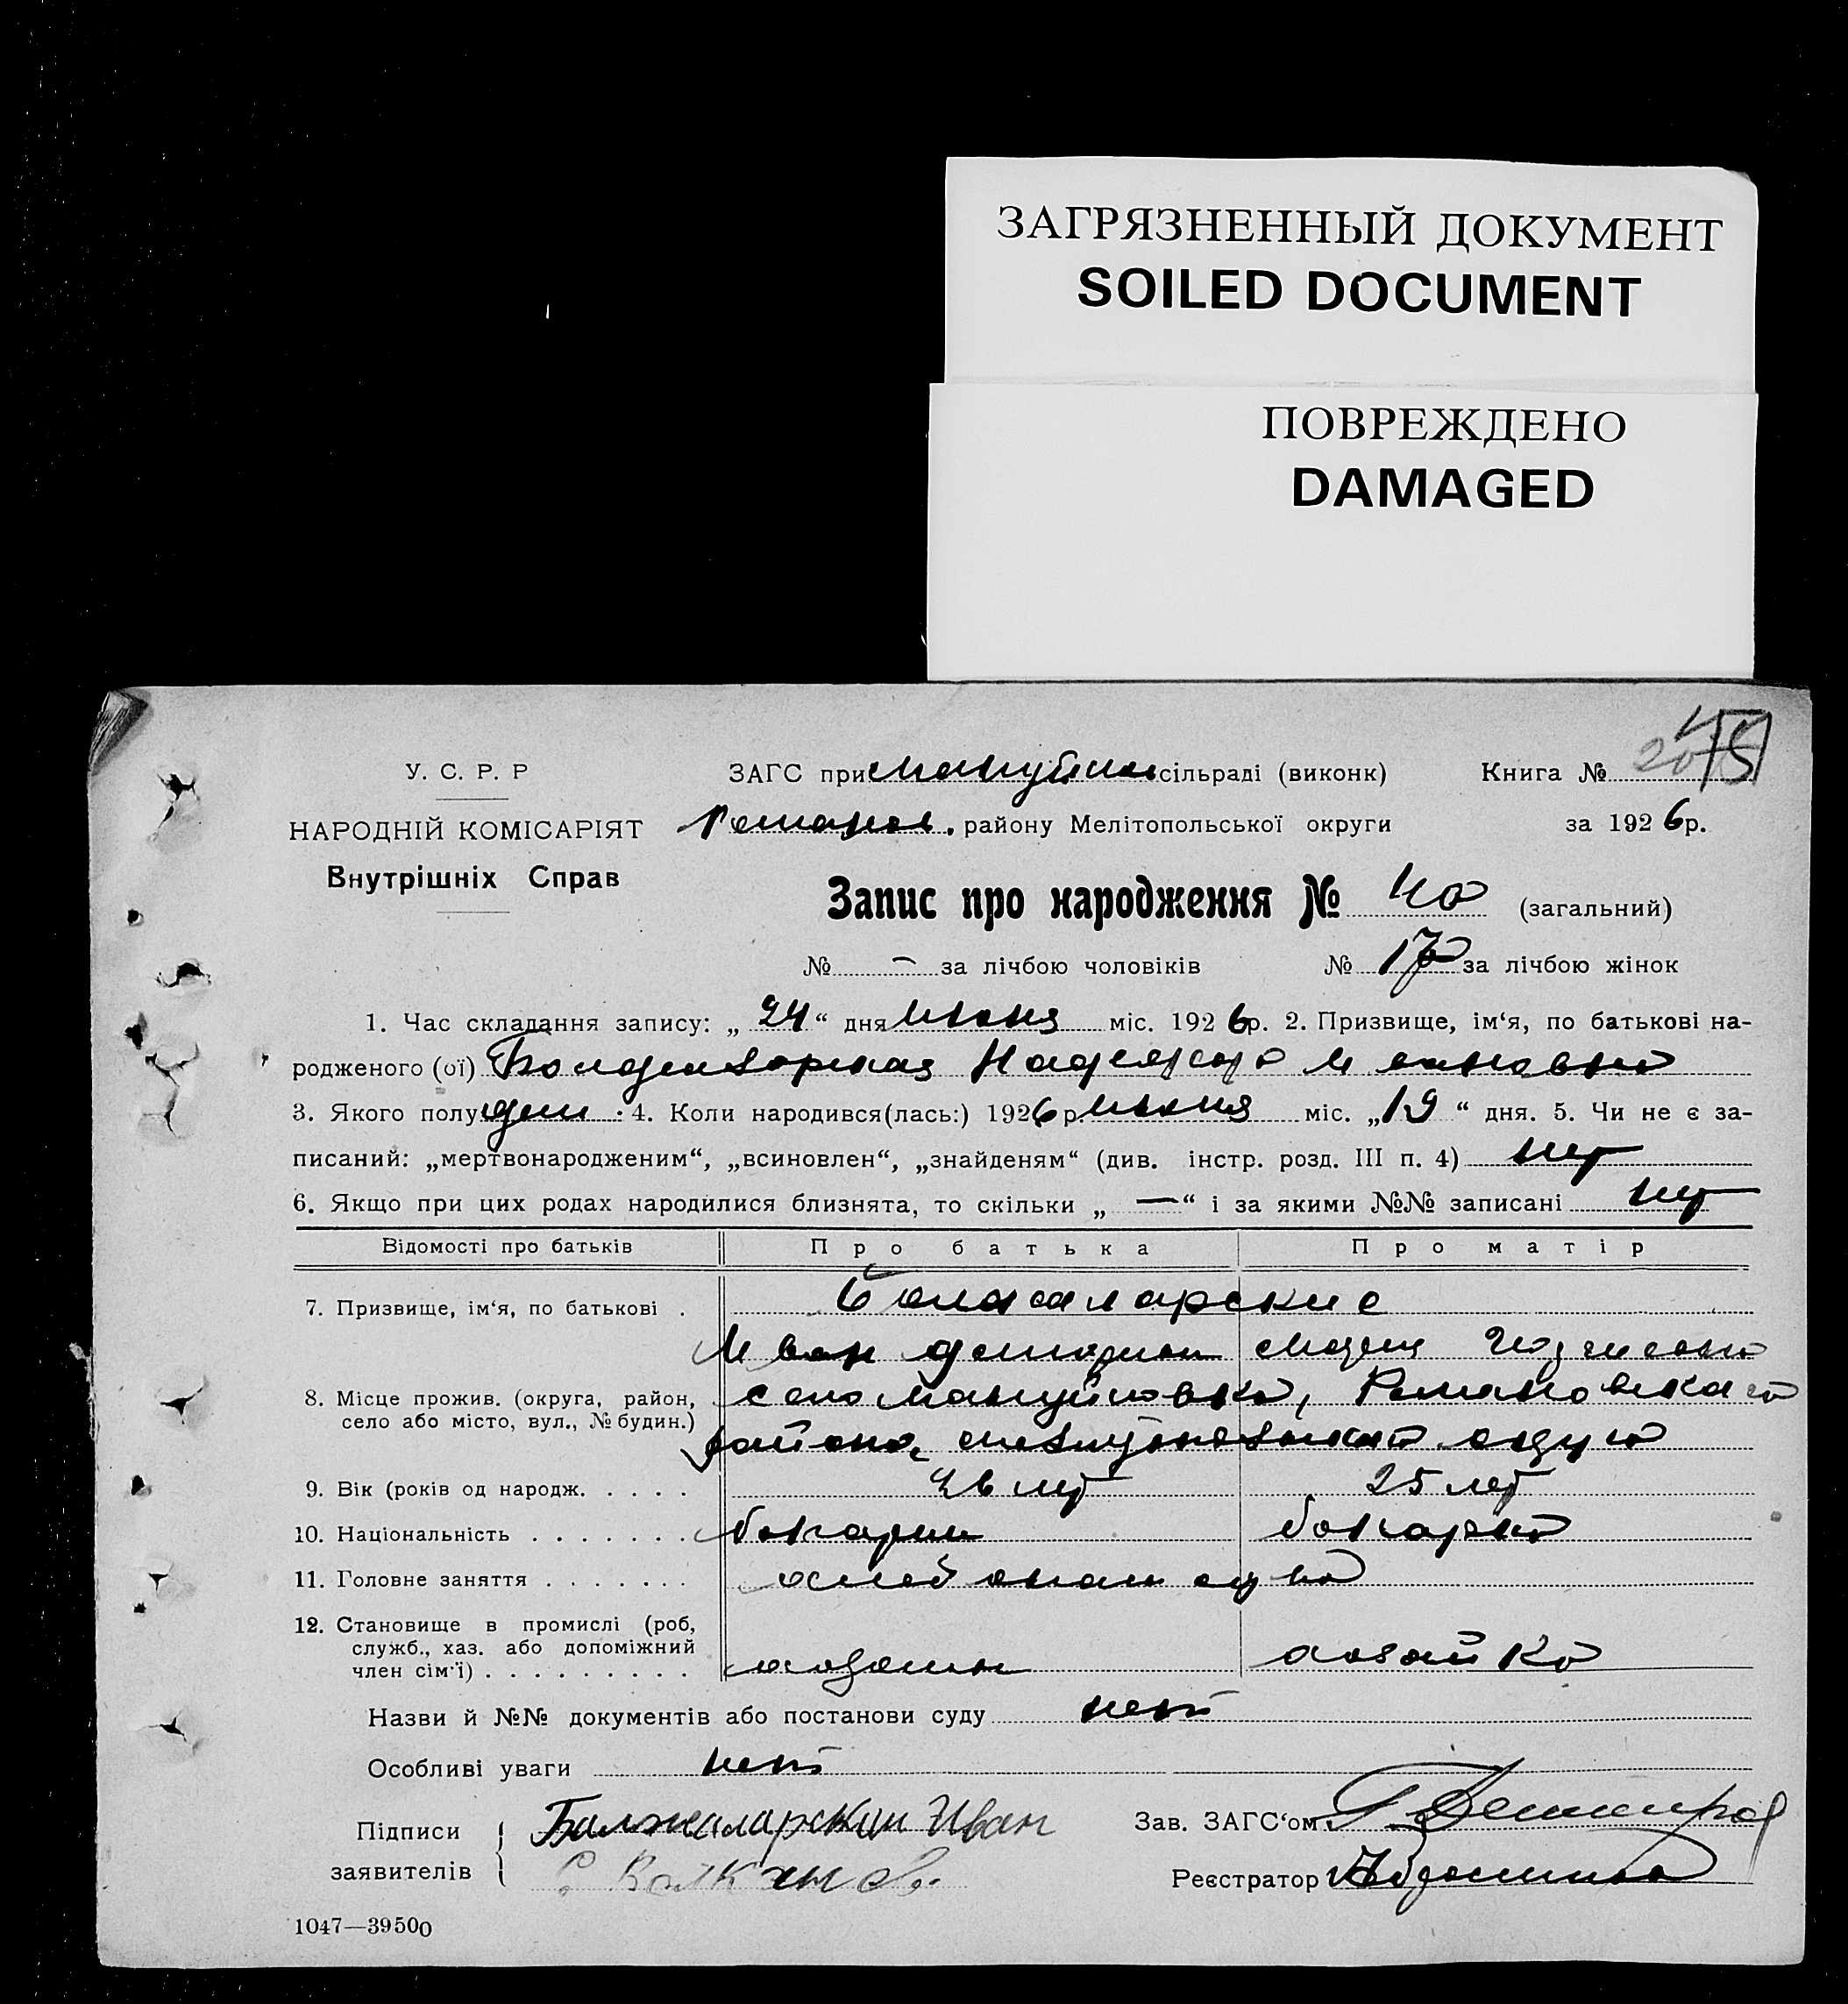 ЗАГРЯЗНЕННЫЙ ДОКУМЕНТ
SOILED DOCUMENT
ПОВРЕЖДЕНО
DAMAGED
У. С. Р. Р
НАРОДНІЙ КОМІСАРІЯТ
Внутрішніх Справ
ЗАГС при Мануйлов сільраді (виконк) Книга №
Романов. району Мелітопольської округи за 1926р.
Запис про народження № 40 (загальний)
№ — за лічбою чоловіків № 17 за лічбою жінок
1. Час складання запису: „24“ дня Июня міс. 1926р. 2. Призвище, ім‘я, по батькові на-
родженого (ої) Надежда Ивановна
3. Якого полу жен. 4. Коли народився(лась:) 1926р. Июня міс. „19“ дня. 5. Чи не є за-
писаний: „мертвонародженим“, „всиновлен“, „знайденям“ (див. інстр. розд. III п. 4) нет
6. Якщо при цих родах народилися близнята, то скільки „—“ і за якими №№ записані нет
Відомості про батьків Про батька Про матір
7. Призвище, ім‘я, по батькові .
Иван
8. Місце прожив. (округа, район, село Мануйловка, Романовского
село або місто, вул., № будин.)
района, округа
9. Вік (років од народж. . . . . 26 лет 25 лет
10. Національність . . . . . . . болгарин болгарка
11. Головне заняття . . . . . . .
12. Становище в промислі (роб,
служб., хаз. або допоміжний
член сім‘ї) . . . . . . . . . хозяин хозяйка
Назви й №№ документів або постанови суду нет
Особливі уваги нет
Підписи
заявителів
Балжаларский Иван
С. Волканов.
Зав. ЗАГС‘ом
Реєстратор
1047—39500